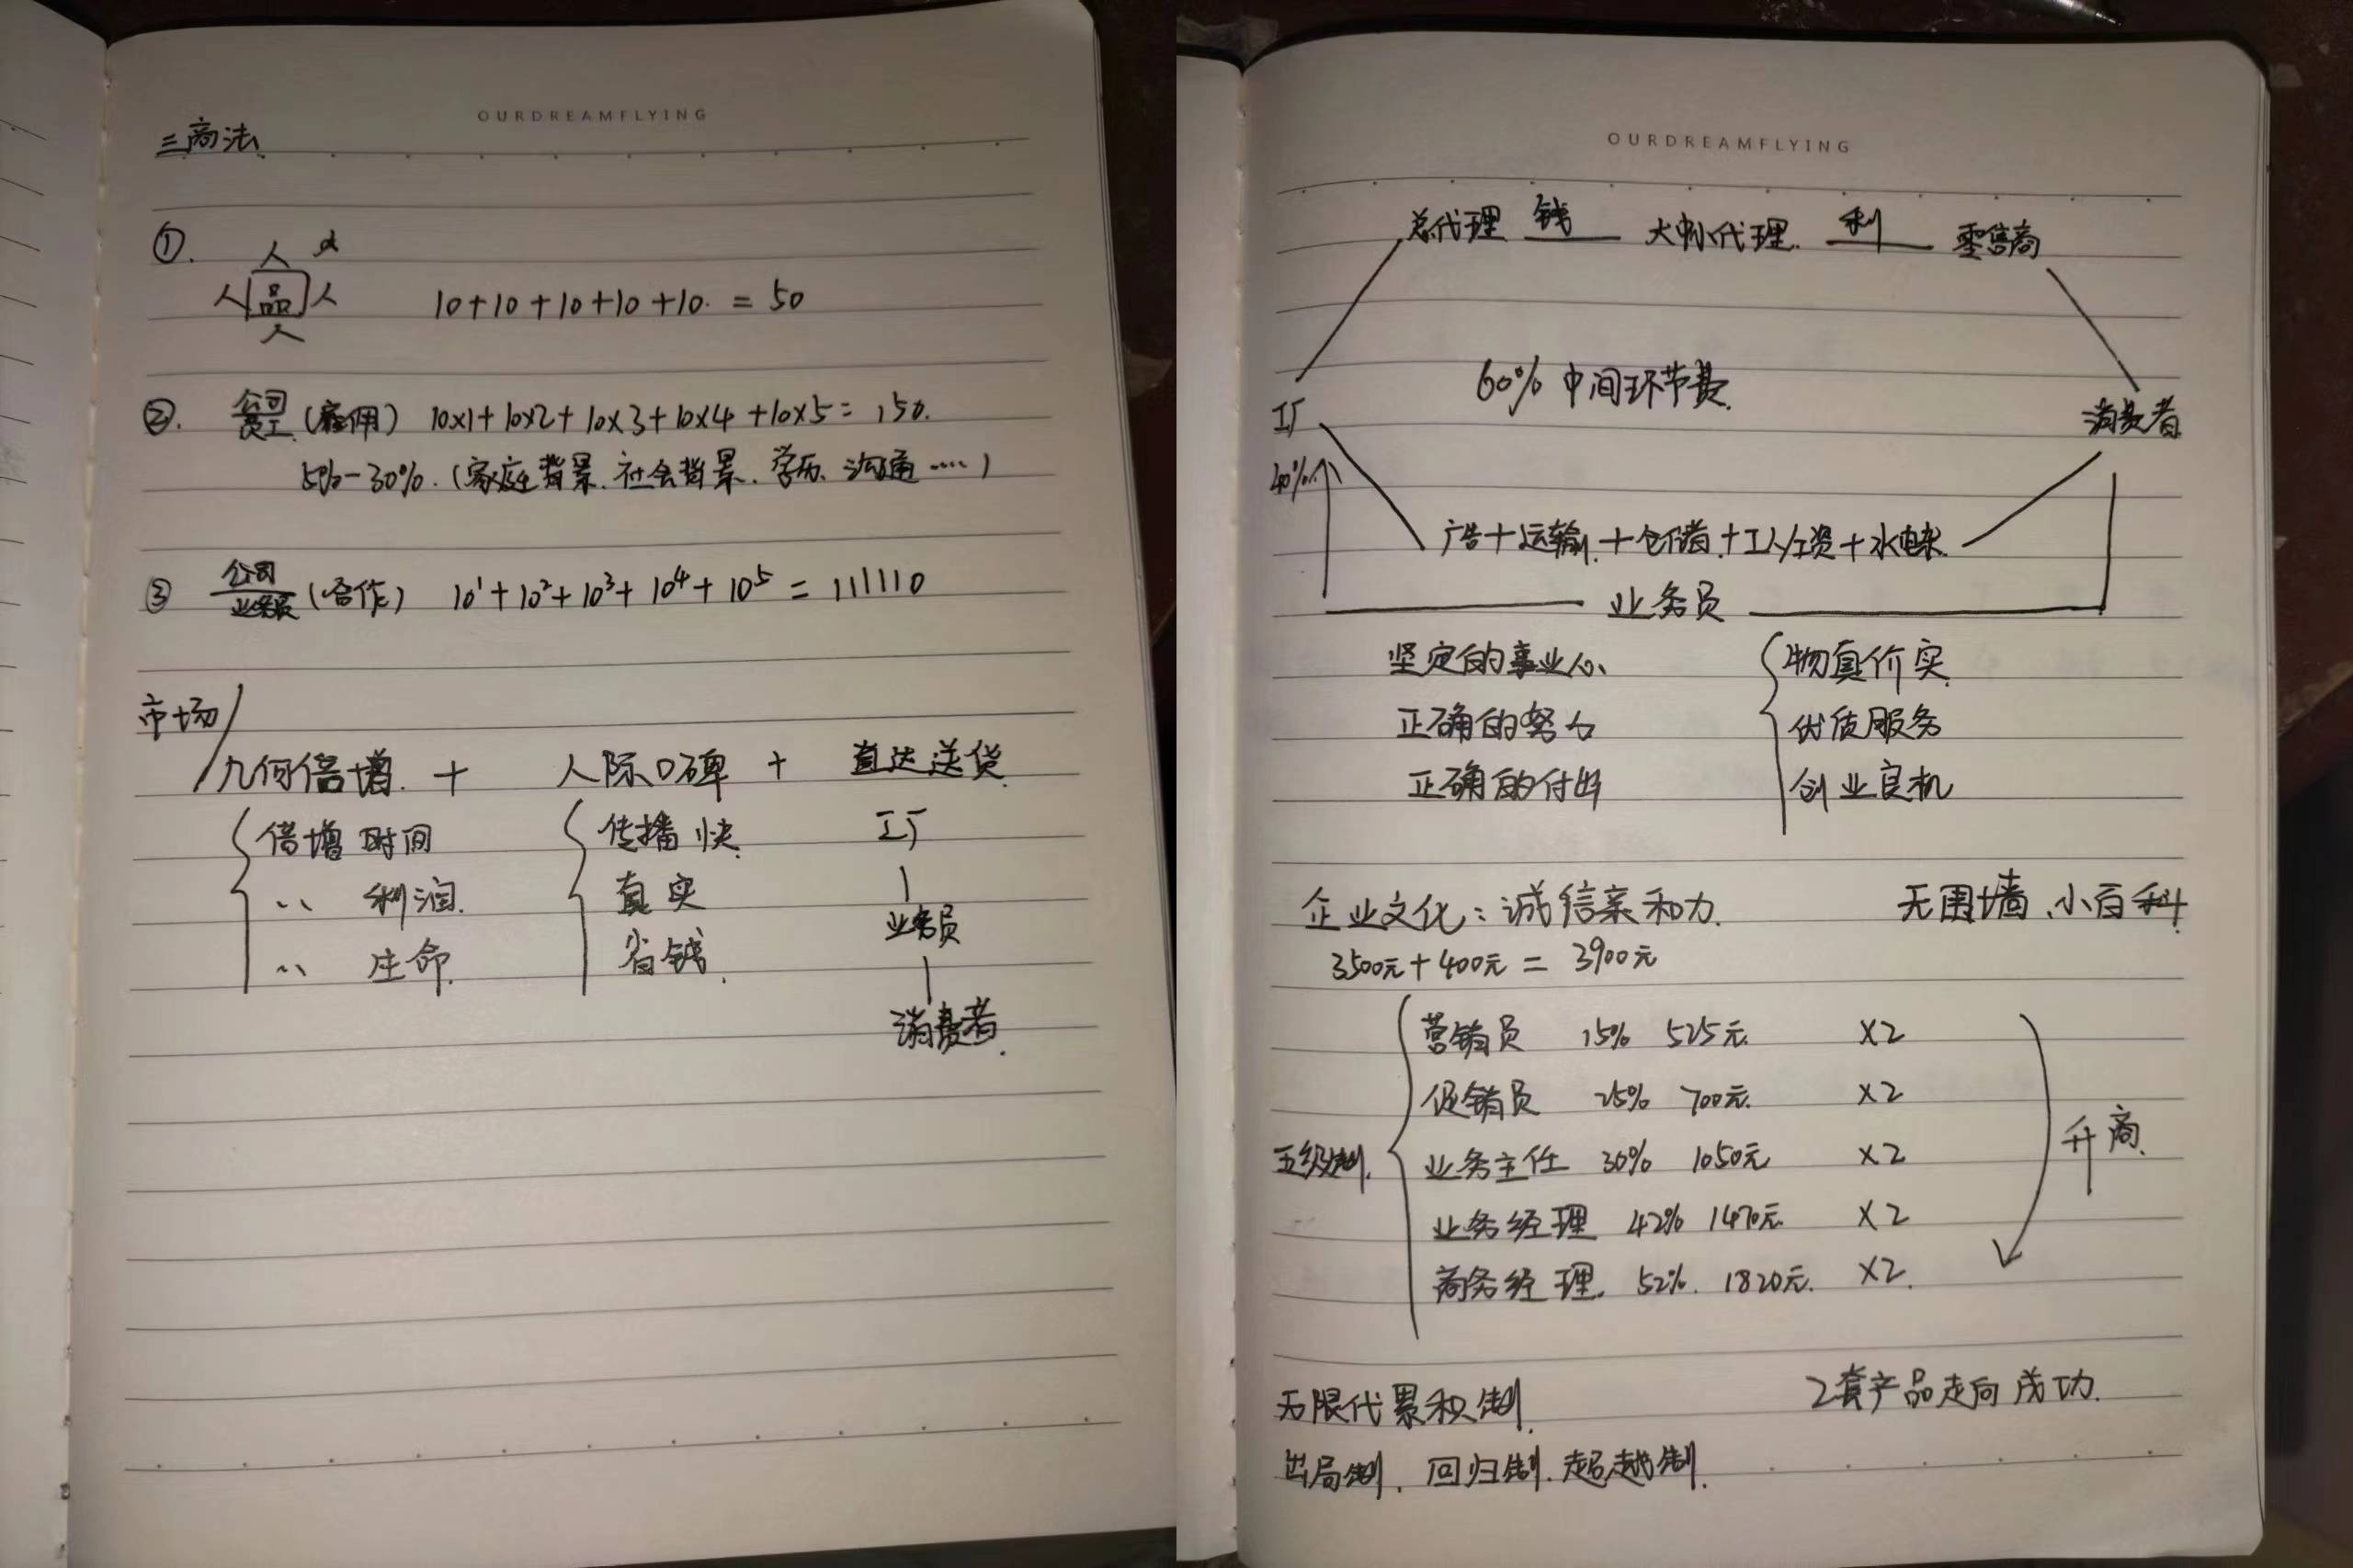 OURDREAMFLYING
三商法
①.
人
人 品 人
人
10+10+10+10+10. = 50
②. 公司 (雇佣) 10x1+10x2+10x3+10x4+10x5= 150.
员工
5%-30%.(家庭背景、社会背景、学历、沟通……)
③ 公司 (合作) 10¹+10²+10³+10⁴+10⁵ = 111110
业务员
市场
几何倍增. + 人际口碑 + 直达送货
倍增 时间 传播快. 工厂
‥ 利润. 真实
业务员
‥ 生命. 省钱.
消费者.
OURDREAMFLYING
总代理 钱 大中小代理. 利 零售商
60% 中间环节费.
工厂 消费者
40%
广告+运输.+仓储.+工人工资+水电米
业务员
坚定的事业心、 物真价实.
正确的努力 优质服务
正确的付出 创业良机
企业文化：诚信亲和力. 无围墙、小百科.
3500元+400元 = 3900元
营销员 15% 525元. X2
促销员 25% 700元. X2
五级制. 业务主任 30% 1050元 X2 升商.
业务经理 42% 1470元. X2
商务经理. 52%. 1820元. X2.
无限代累积制. 2套产品走向成功.
出局制. 回归制. 超越制.